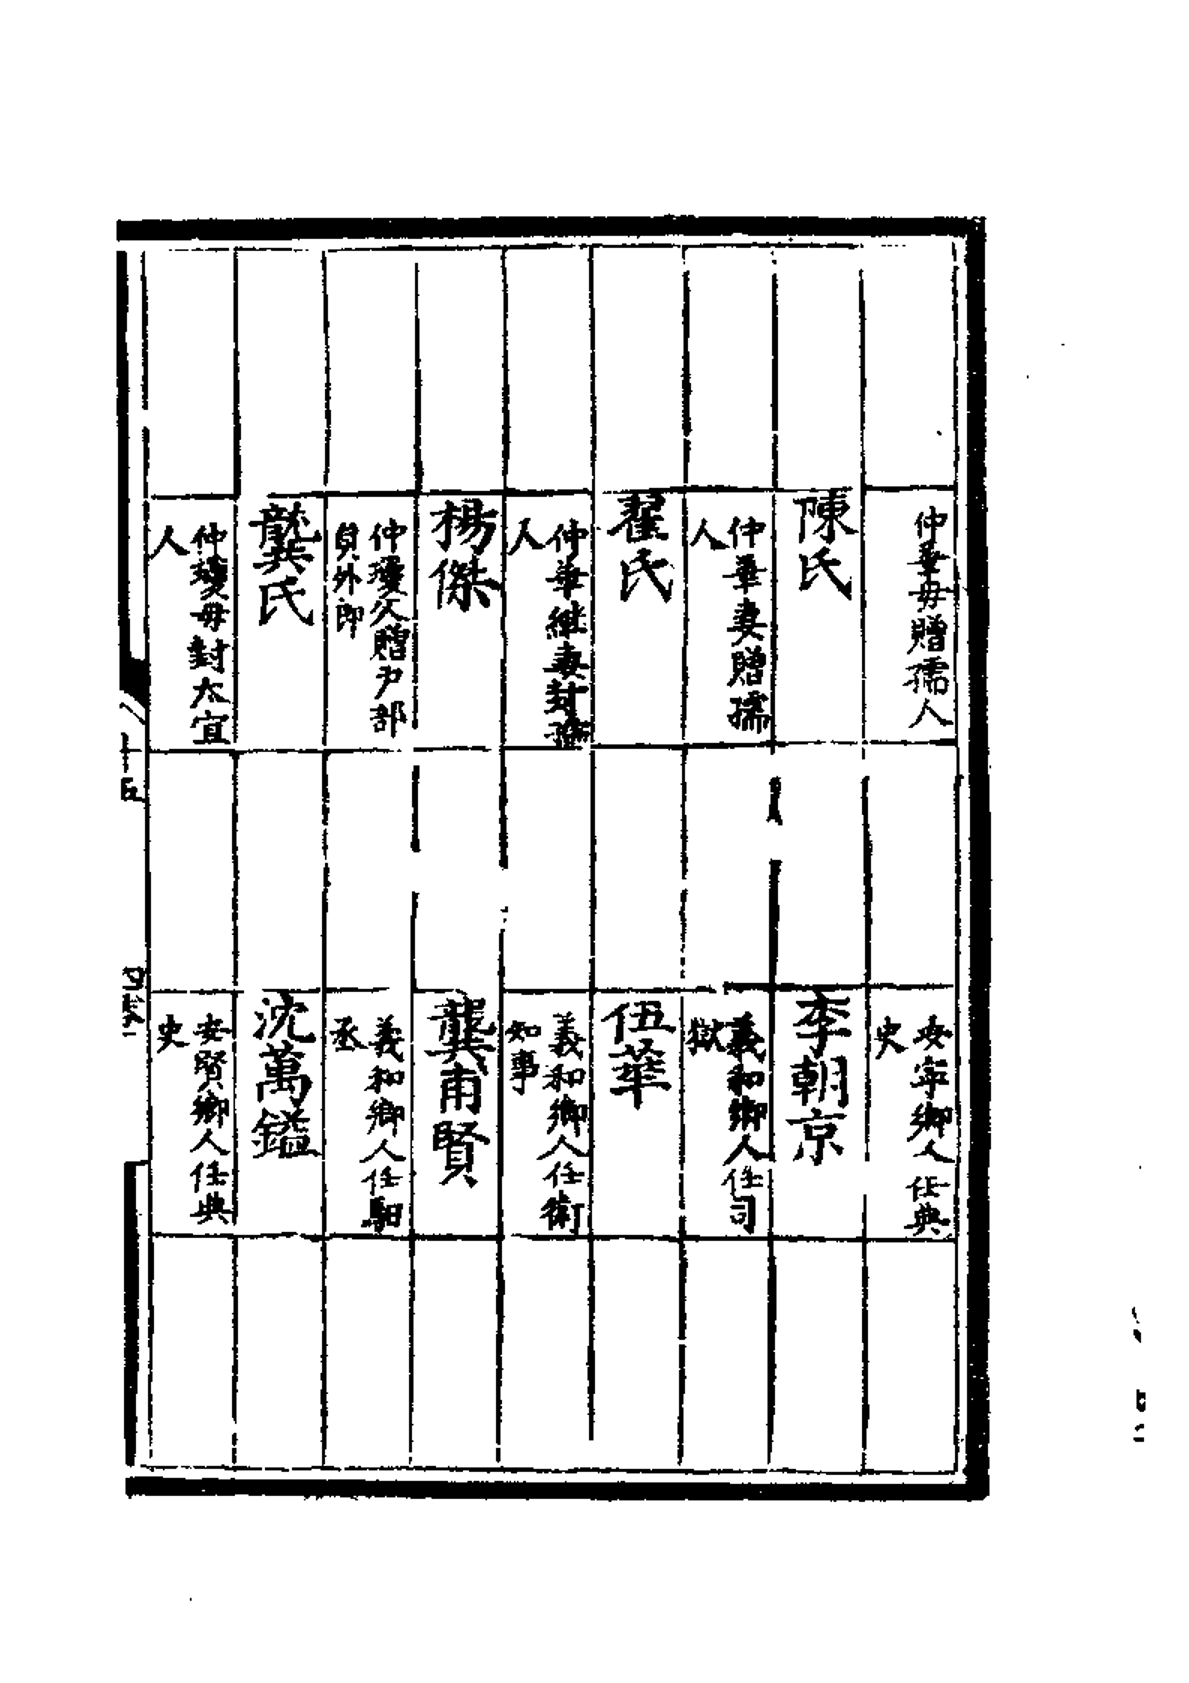 仲華母贈孺人
陳氏
仲華妻贈孺
人
翟氏
仲華继妻封孺
人
楊傑
仲瓊父贈戸部
員外郎
龔氏
仲瓊母封太宜
人
安寜鄉人任典
史
李朝京
義和鄉人任司
獄
伍華
義和鄉人任衛
知事
龔甫賢
義和鄉人任馹
丞
沈萬鎰
安賢鄉人任典
史
十五
四卷